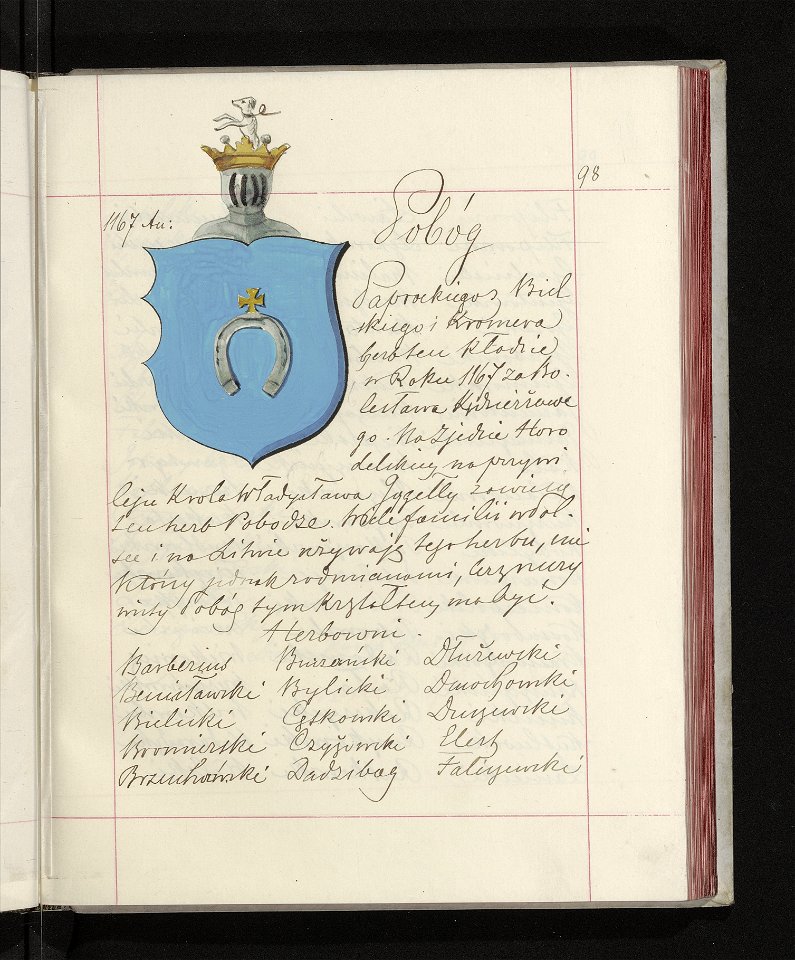 98
1167 An:
Pobóg
Paprockiego z Biel
skiego i Kromera
herb ten kładzie
w Roku 1167 za Bo.
lesława Kędzierżawe
go. Na Zjedzie Horo
delskiey na przywi
leju Krola Władysława Jygełły zawiesię
ten herb Pobodze. Wiele familii w Pol-
sce i na Litwie używają tego herbu,
ktory jednak z odmianami, lecz
Pobóg tym kształtem ma być.
Herbowni.
Barberius Burzeński Dłużewski
Benisławski Bylicki Dmochowski
Bielicki Cętkowski Duszewski
Bromierski Czyżowski Elert
Brzuchański Dadzibog Faliszewski